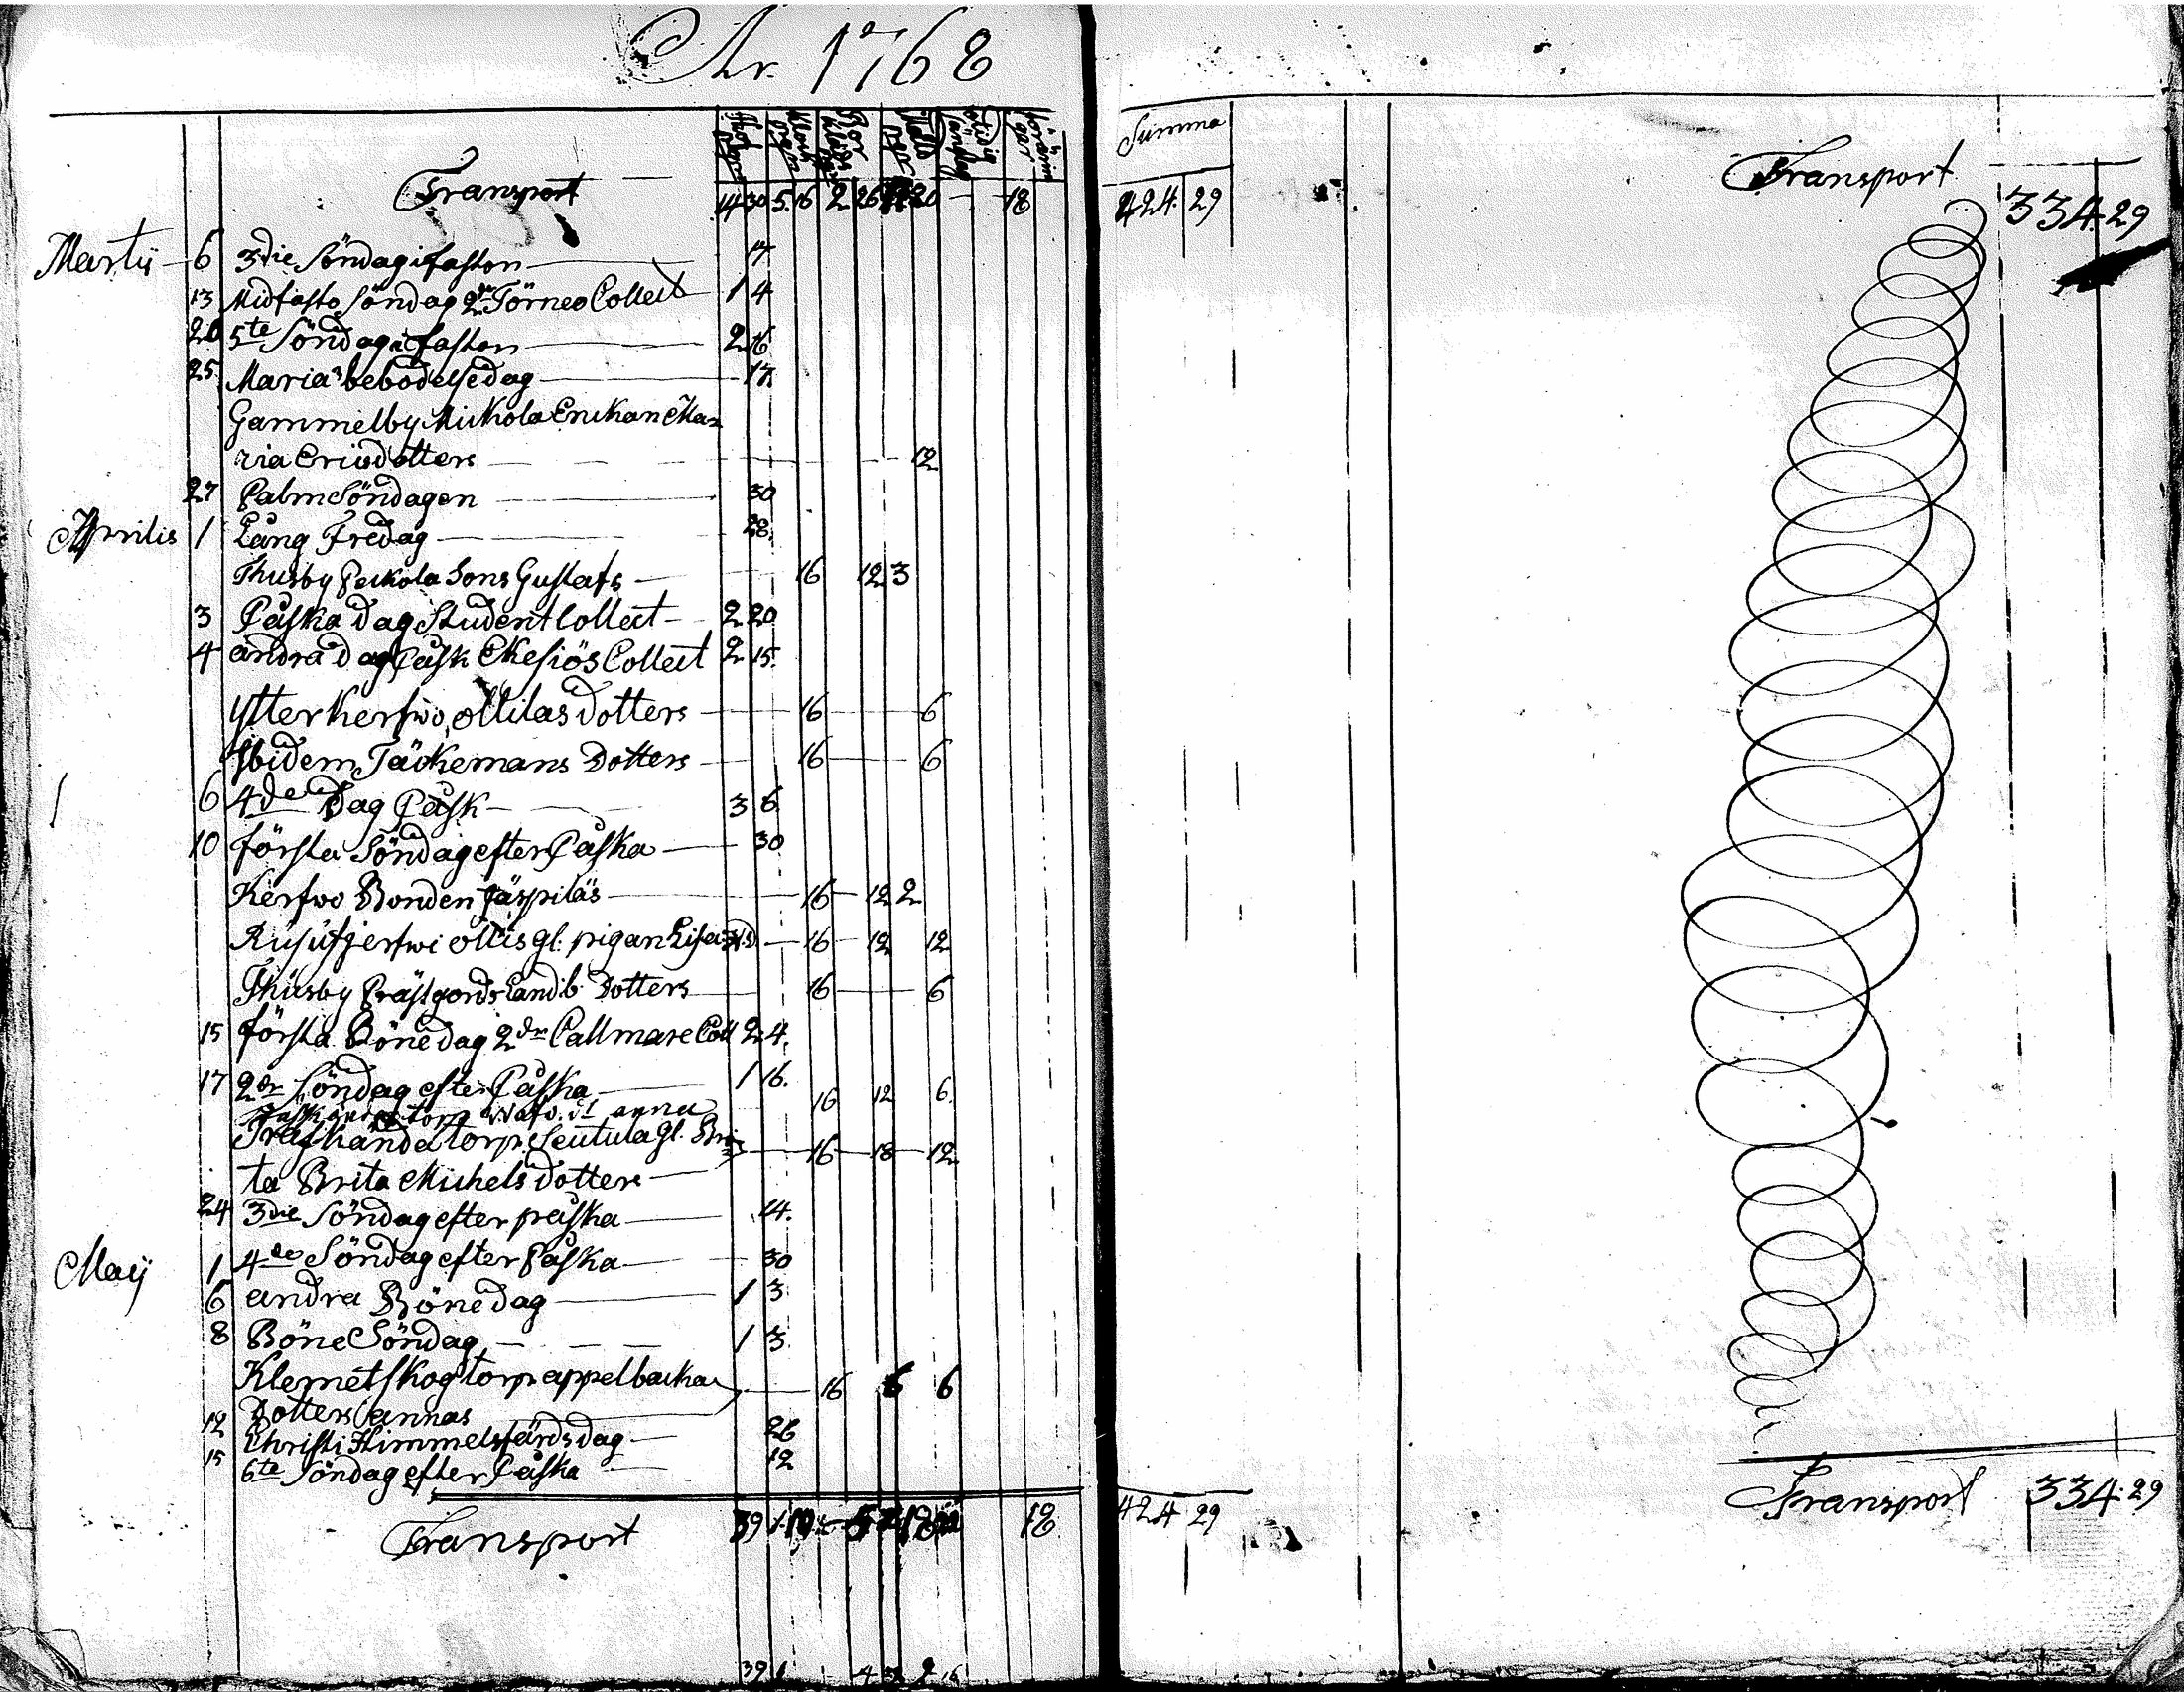 År 1768
Klock ringn Bår kläds
Summa
Transport 14 30 5. 16 2 26 20 — 18 424. 29
Transport 334. 29
Martii 6 3die Söndag i faston 17
13 Midfasto Söndag 2dra Törneo Collect 1 4
20 5te Söndag i faston 2 16
25 Mariæ bebodelsedag 17
Gammelby Mickola Enckan Ma=
ria Ericsdotters 12
27 Palm Söndagen 30
Aprilis 1 Lång Fredag 28
Thusby Peckola Sons Gustafs 16 12 3
3 Påska dag Student Collect 2 20
4 andra dag Påsk Ekesiös Collect 2 15.
Ytter Kerfwo, Ollilas Dotters 16 6
Ibidem Täckemans Dotters 16 6
6 4de Dag Påsk 3 6
10 första Söndag efter Påska 30
Kerfwo Bonden Jäspiläs 16 12 2
Ollis gl. pigan Lisa 16 12 12
Thusby Prästgårds Landb. Dotters 16 6
15 första Böne dag 2dra Callmare Coll 2. 4.
17 2dra Söndag efter Påska 1 16.
torp anna 16 12 6.
Träskända torp. Seutula gl. 16 18 12
ta Brita Michels dotters
24 3die Söndag efter påska 14.
Maij 1 4de Söndag efter Påska 30
6 andra Bönedag 1 3
8 Böne Söndag 1 3
Klemetskog torp appelbacka 16 6 6
Dotters annas
12 Christi Himmelsfärds dag 26
15 6te Söndag efter Påska 12
Transport 39 1. 18 424 29
Transport 334. 29
39 1 4 2 16